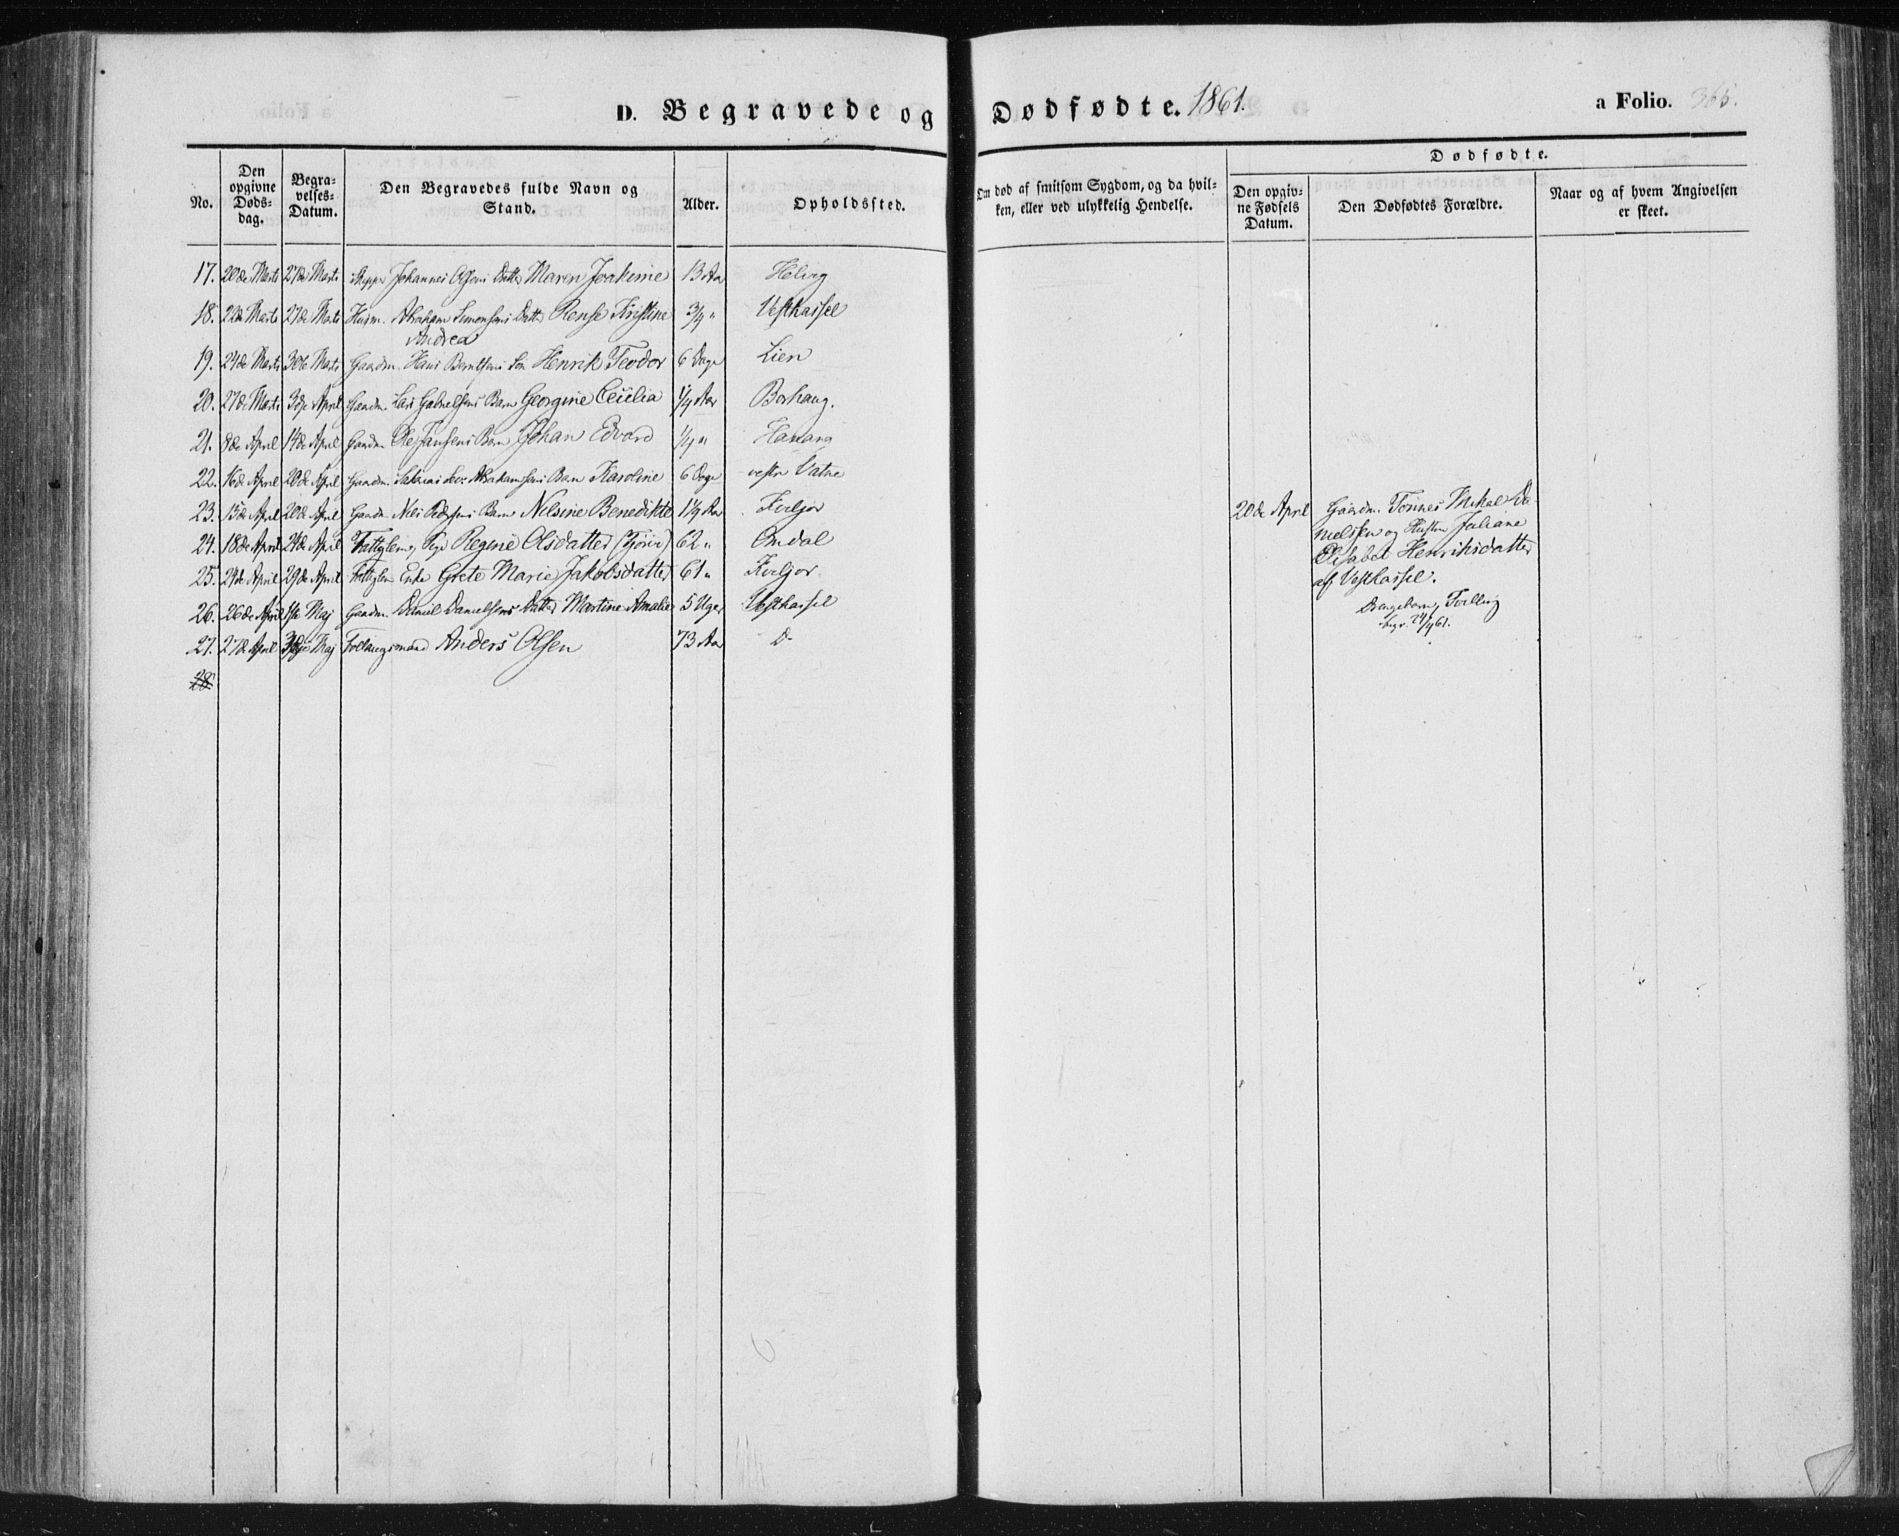 D. Begravede og Dødfødte. 1861. a Folio. 366.
No.
Den opgivne Døds-dag.
Begra-velses-Datum.
Den Begravedes fulde Navn og Stand.
Alder.
Opholdssted.
Om død af smitsom Sygdom, og da hvil-ken, eller ved ulykkelig Hendelse.
Dødfødte.
Den opgiv-ne Fødsels Datum.
Den Dødfødtes Forældre.
Naar og af hvem Angivelsen er skeet.
17. 20de Marts 27de Marts Skipper Johannes Olsens Datter Maren Joakime 13 Aar Helvig
18. 22de Marts 27de Marts Husm. Abraham Simonsens Datter Rense Kristine 3/4 " Vesthassel
Andrea
19. 24de Marts 30te Marts Gaardm. Hans Berntsens Søn Henrik Teodor 6 Dage Lien
20. 27de Marts 3dje April Gaardm. Lars Gabrielsens Barn Georgine Cecilia 1/4 Aar Borhaug.
21. 8de April 14de April Gaardm. Ole Jansens Barn Johan Edvard 1/4 " Hanang
22. 16de April 20de April Gaardm. Abrahamsens Barn Karoline 6 Dage vestre Vatne
23. 15de April 20de April Gaardm. Nels Pedersens Barn Nelsine Benedikte 1 1/4 Aar Kviljor
24. 18de April 24de April Fattiglem, Pige Regine Olsdatter (Tjørve) 62 " Omdal
25. 24de April 29de April Fattiglem Enke Grete Marie Jakobsdatter 61 " Kviljor.
26. 26de April 1ste Maj Gaardm. Daniel Danielsens Datter Martine Amalie 5 Uger Vesthassel
27. 27de April 3dje Maj Føderaadsmand Anders Olsen 73 Aar D
28.
20de April Gaardm. Tønnes Mikal Da-
nielsen og Hustru Juliane
Elisabet Henriksdatter
af Vesthassel.
Drengebarn, Tvilling
begr. 24/4 61.